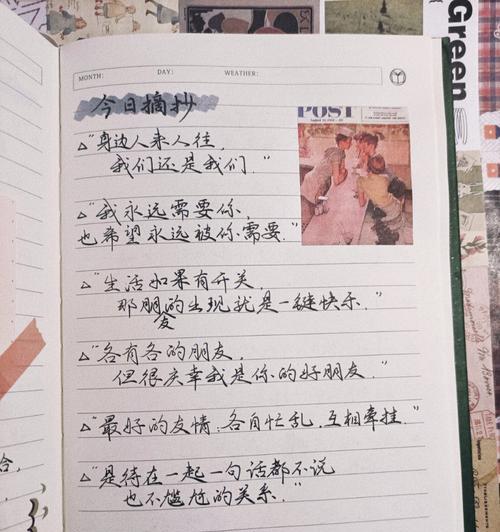 Green
MONTH: DAY: WEATHER:
今日摘抄
POST
△"身边人来人往,
我们还是我们."
△"我永远需要你,
也希望永远被你需要."
△"生活如果有开关,
那朋友的出现就是一键快乐."
△"各有各的朋友,
但很庆幸我是你的好朋友."
△"最好的友情:各自忙乱,互相牵挂."
△"是待在一起一句话都不说
也不尴尬的关系."